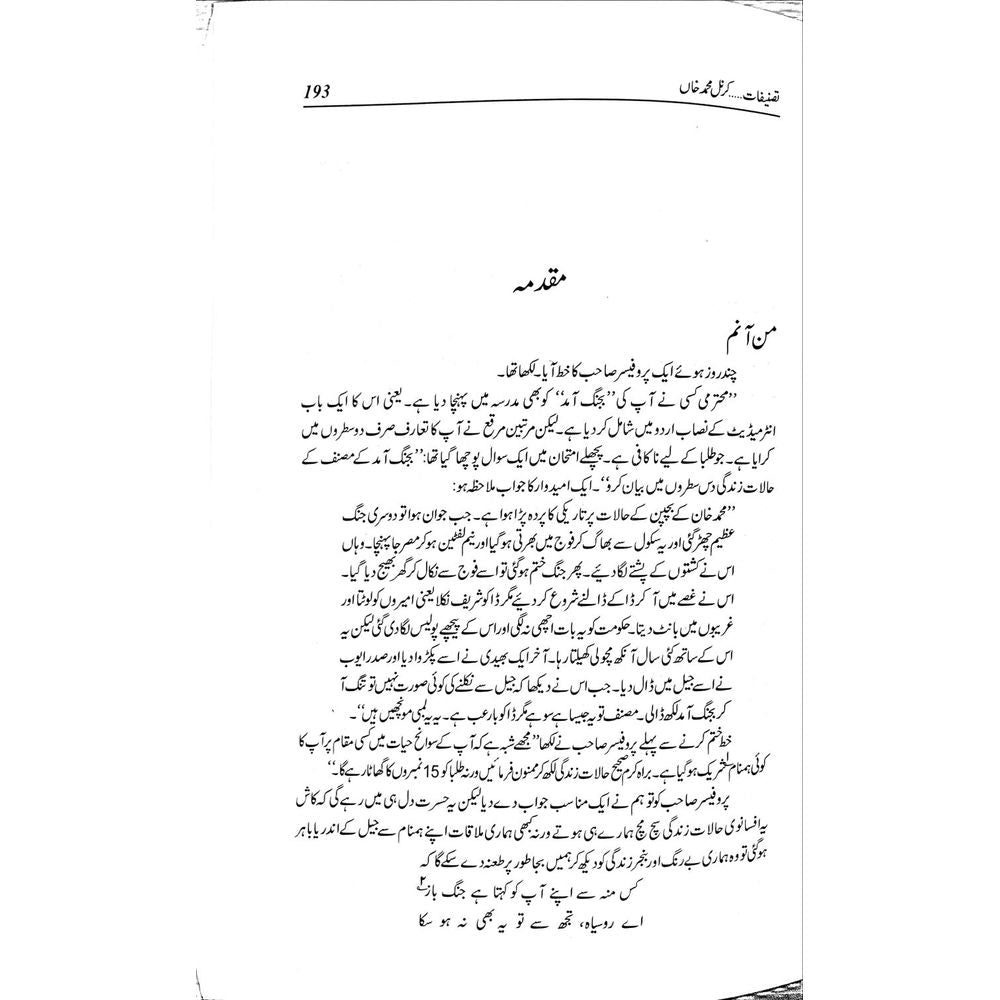 تصنیفات.....کرنل محمد خاں
193
مقدمہ
من آنم
چند روز ہوئے ایک پروفیسر صاحب کا خط آیا۔ لکھا تھا۔
’’محترمی کسی نے آپ کی ’’بجنگ آمد‘‘ کو بھی مدرسہ میں پہنچا دیا ہے۔ یعنی اس کا ایک باب
انٹرمیڈیٹ کے نصاب اردو میں شامل کر دیا ہے۔ لیکن مرتبین مرقع نے آپ کا تعارف صرف دو سطروں میں
کرایا ہے۔ جو طلبا کے لیے ناکافی ہے۔ پچھلے امتحان میں ایک سوال پوچھا گیا تھا: ’’بجنگ آمد کے مصنف کے
حالات زندگی دس سطروں میں بیان کرو‘‘۔ ایک امیدوار کا جواب ملاحظہ ہو:
’’محمد خان کے بچپن کے حالات پر تاریکی کا پردہ پڑا ہوا ہے۔ جب جوان ہوا تو دوسری جنگ
عظیم چھڑ گئی اور یہ سکول سے بھاگ کر فوج میں بھرتی ہو گیا اور نیم لفٹین ہو کر مصر جا پہنچا۔ وہاں
اس نے کشتوں کے پشتے لگا دیئے۔ پھر جنگ ختم ہو گئی تو اسے فوج سے نکال کر گھر بھیج دیا گیا۔
اس نے غصے میں آ کر ڈاکے ڈالنے شروع کر دیئے مگر ڈاکو شریف نکلا یعنی امیروں کو لوٹتا اور
غریبوں میں بانٹ دیتا۔ حکومت کو یہ بات اچھی نہ لگی اور اس کے پیچھے پولیس لگا دی گئی لیکن یہ
اس کے ساتھ کئی سال آنکھ مچولی کھیلتا رہا۔ آخر ایک بھیدی نے اسے پکڑوا دیا اور صدر ایوب
نے اسے جیل میں ڈال دیا۔ جب اس نے دیکھا کہ جیل سے نکلنے کی کوئی صورت نہیں تو تنگ آ
کر بجنگ آمد لکھ ڈالی۔ مصنف تو یہ جیسا ہے سو ہے مگر ڈاکو بارعب ہے۔ یہ یہ لمبی مونچھیں ہیں‘‘۔
خط ختم کرنے سے پہلے پروفیسر صاحب نے لکھا ’’مجھے شبہ ہے کہ آپ کے سوانح حیات میں کسی مقام پر آپ کا
کوئی ہمنام شریک ہو گیا ہے۔ براہ کرم صحیح حالات زندگی لکھ کر ممنون فرمائیں ورنہ طلبا کو 15 نمبروں کا گھاٹا رہے گا۔‘‘
پروفیسر صاحب کو تو ہم نے ایک مناسب جواب دے دیا لیکن یہ حسرت دل ہی میں رہے گی کہ کاش
یہ افسانوی حالات زندگی سچ مچ ہمارے ہی ہوتے ورنہ کبھی ہماری ملاقات اپنے ہمنام سے جیل کے اندر یا باہر
ہو گئی تو وہ ہماری بے رنگ اور بنجر زندگی کو دیکھ کر ہمیں بجا طور پر طعنہ دے سکے گا کہ
کس منہ سے اپنے آپ کو کہتا ہے جنگ باز۲
اے روسیاہ، تجھ سے تو یہ بھی نہ ہو سکا